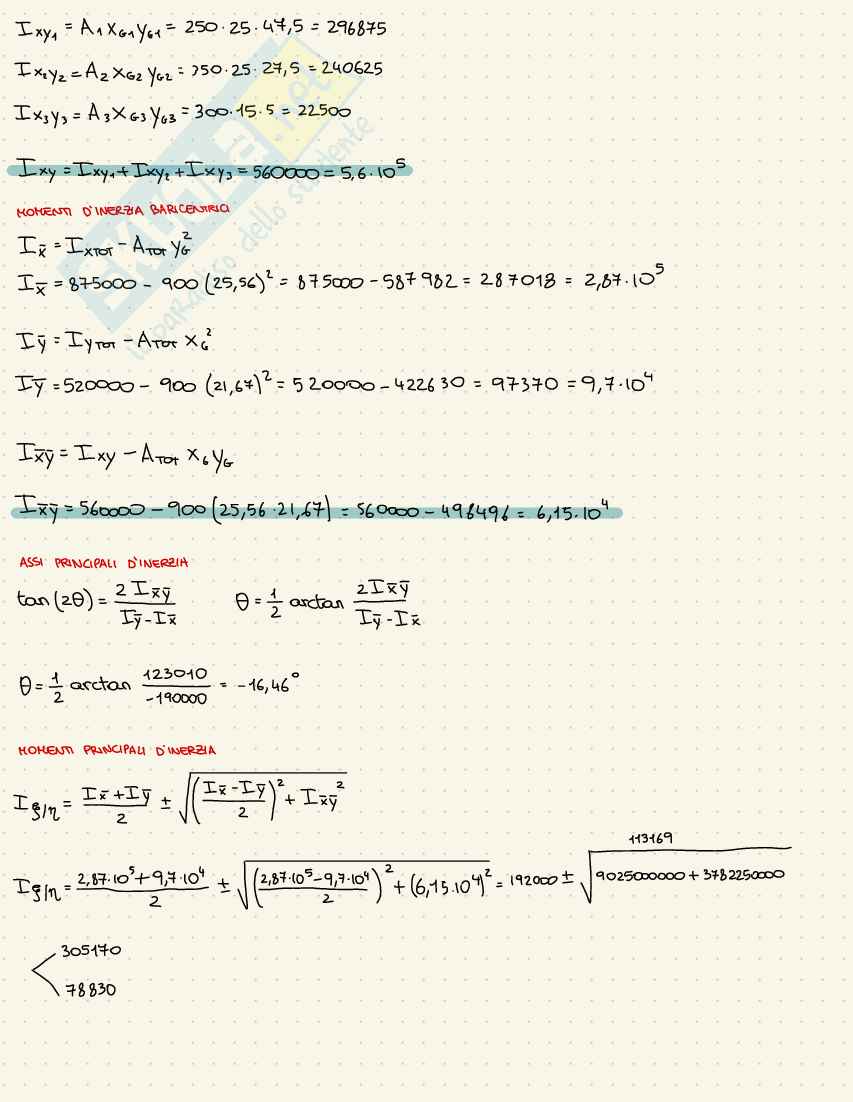 Ixy₁ = A₁ x_G1 y_G1 = 250 · 25 · 47,5 = 296875
Ix₂y₂ = A₂ x_G2 y_G2 = 350 · 25 · 27,5 = 240625
Ix₃y₃ = A₃ x_G3 y_G3 = 300 · 15 · 5 = 22500
Ixy = Ixy₁ + Ixy₂ + Ixy₃ = 560000 = 5,6 · 10⁵
MOMENTI D'INERZIA BARICENTRICI
I_x̄ = I_xTOT - A_TOT y_G²
I_x̄ = 875000 - 900 (25,56)² = 875000 - 587982 = 287018 = 2,87 · 10⁵
I_ȳ = I_yTOT - A_TOT x_G²
I_ȳ = 520000 - 900 (21,67)² = 520000 - 422630 = 97370 = 9,7 · 10⁴
I_x̄ȳ = Ixy - A_TOT x_G y_G
I_x̄ȳ = 560000 - 900 (25,56 · 21,67) = 560000 - 498496 = 6,15 · 10⁴
ASSI PRINCIPALI D'INERZIA
tan (2θ) = 2 I_x̄ȳ / (I_ȳ - I_x̄) θ = 1/2 arctan 2 I_x̄ȳ / (I_ȳ - I_x̄)
θ = 1/2 arctan 123010 / -190000 = -16,46°
MOMENTI PRINCIPALI D'INERZIA
I_ξ/η = (I_x̄ + I_ȳ) / 2 ± √( ((I_x̄ - I_ȳ) / 2)² + I_x̄ȳ² )
113169
I_ξ/η = (2,87 · 10⁵ + 9,7 · 10⁴) / 2 ± √( ((2,87 · 10⁵ - 9,7 · 10⁴) / 2)² + (6,15 · 10⁴)² ) = 192000 ± √(9025000000 + 3782250000)
305170
78830
SKUOLA.net
il paradiso dello studente